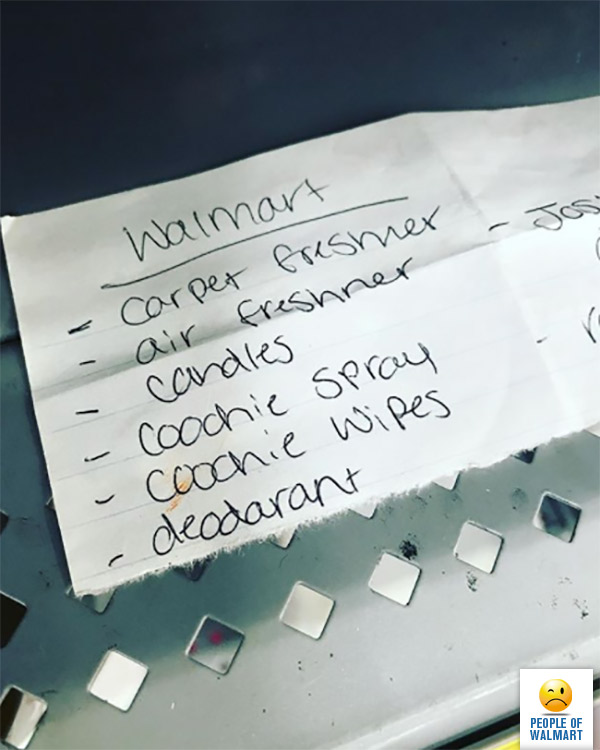 Walmart
- carpet freshner
- air freshner
- candles
- coochie spray
- coochie wipes
- deodarant
- Jos
-
PEOPLE OF
WALMART